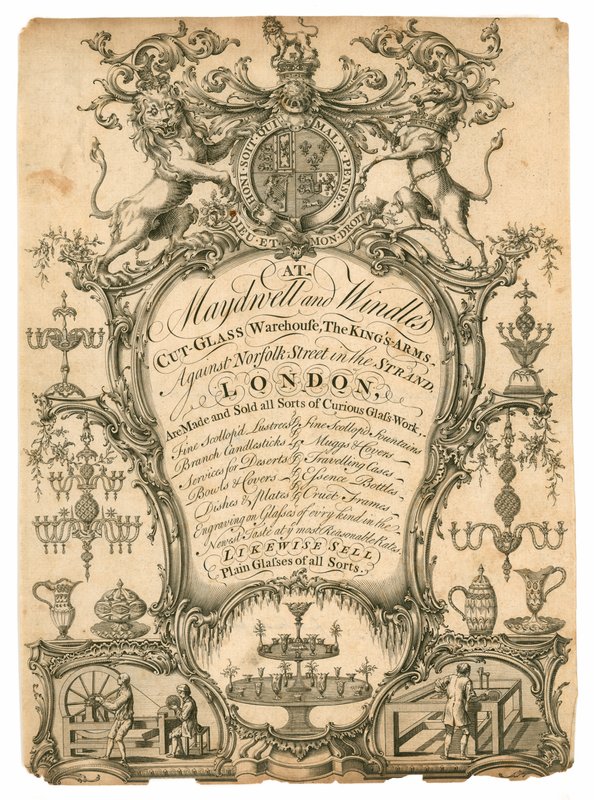 HONI·SOIT·QUI·MAL·Y·PENSE
DIEU·ET MON·DROIT
AT
Maydwell and Windles
CUT-GLASS Warehouſe, The KING'S-ARMS,
Against Norfolk Street in the STRAND,
LONDON,
Are Made and Sold all Sorts of Curious Glaſs Work,
Fine Scollop'd Lustres & fine Scollop'd Fountains
Branch Candlesticks & Muggs & Covers
Services for Deserts & Travelling Cases
Bowls & Covers & Eſsence Bottles
Dishes & Plates & Cruet Frames
Engraving on Glaſses of ev'ry kind in the
Newest Taste at yᵉ most Reasonable Rates
LIKEWISE SELL
Plain Glaſses of all Sorts.